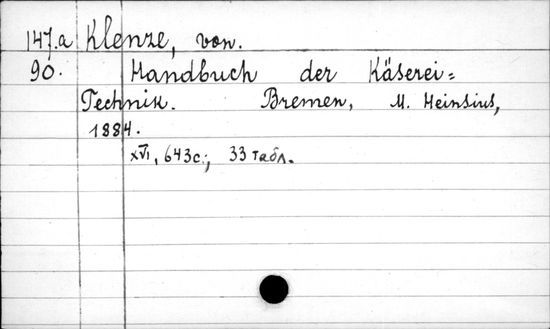 147.a Klenze, von.
90. Handbuch der Käserei=
Technik. Bremen, M. Heinsius,
1884.
XVI, 643 с.; 33 табл.